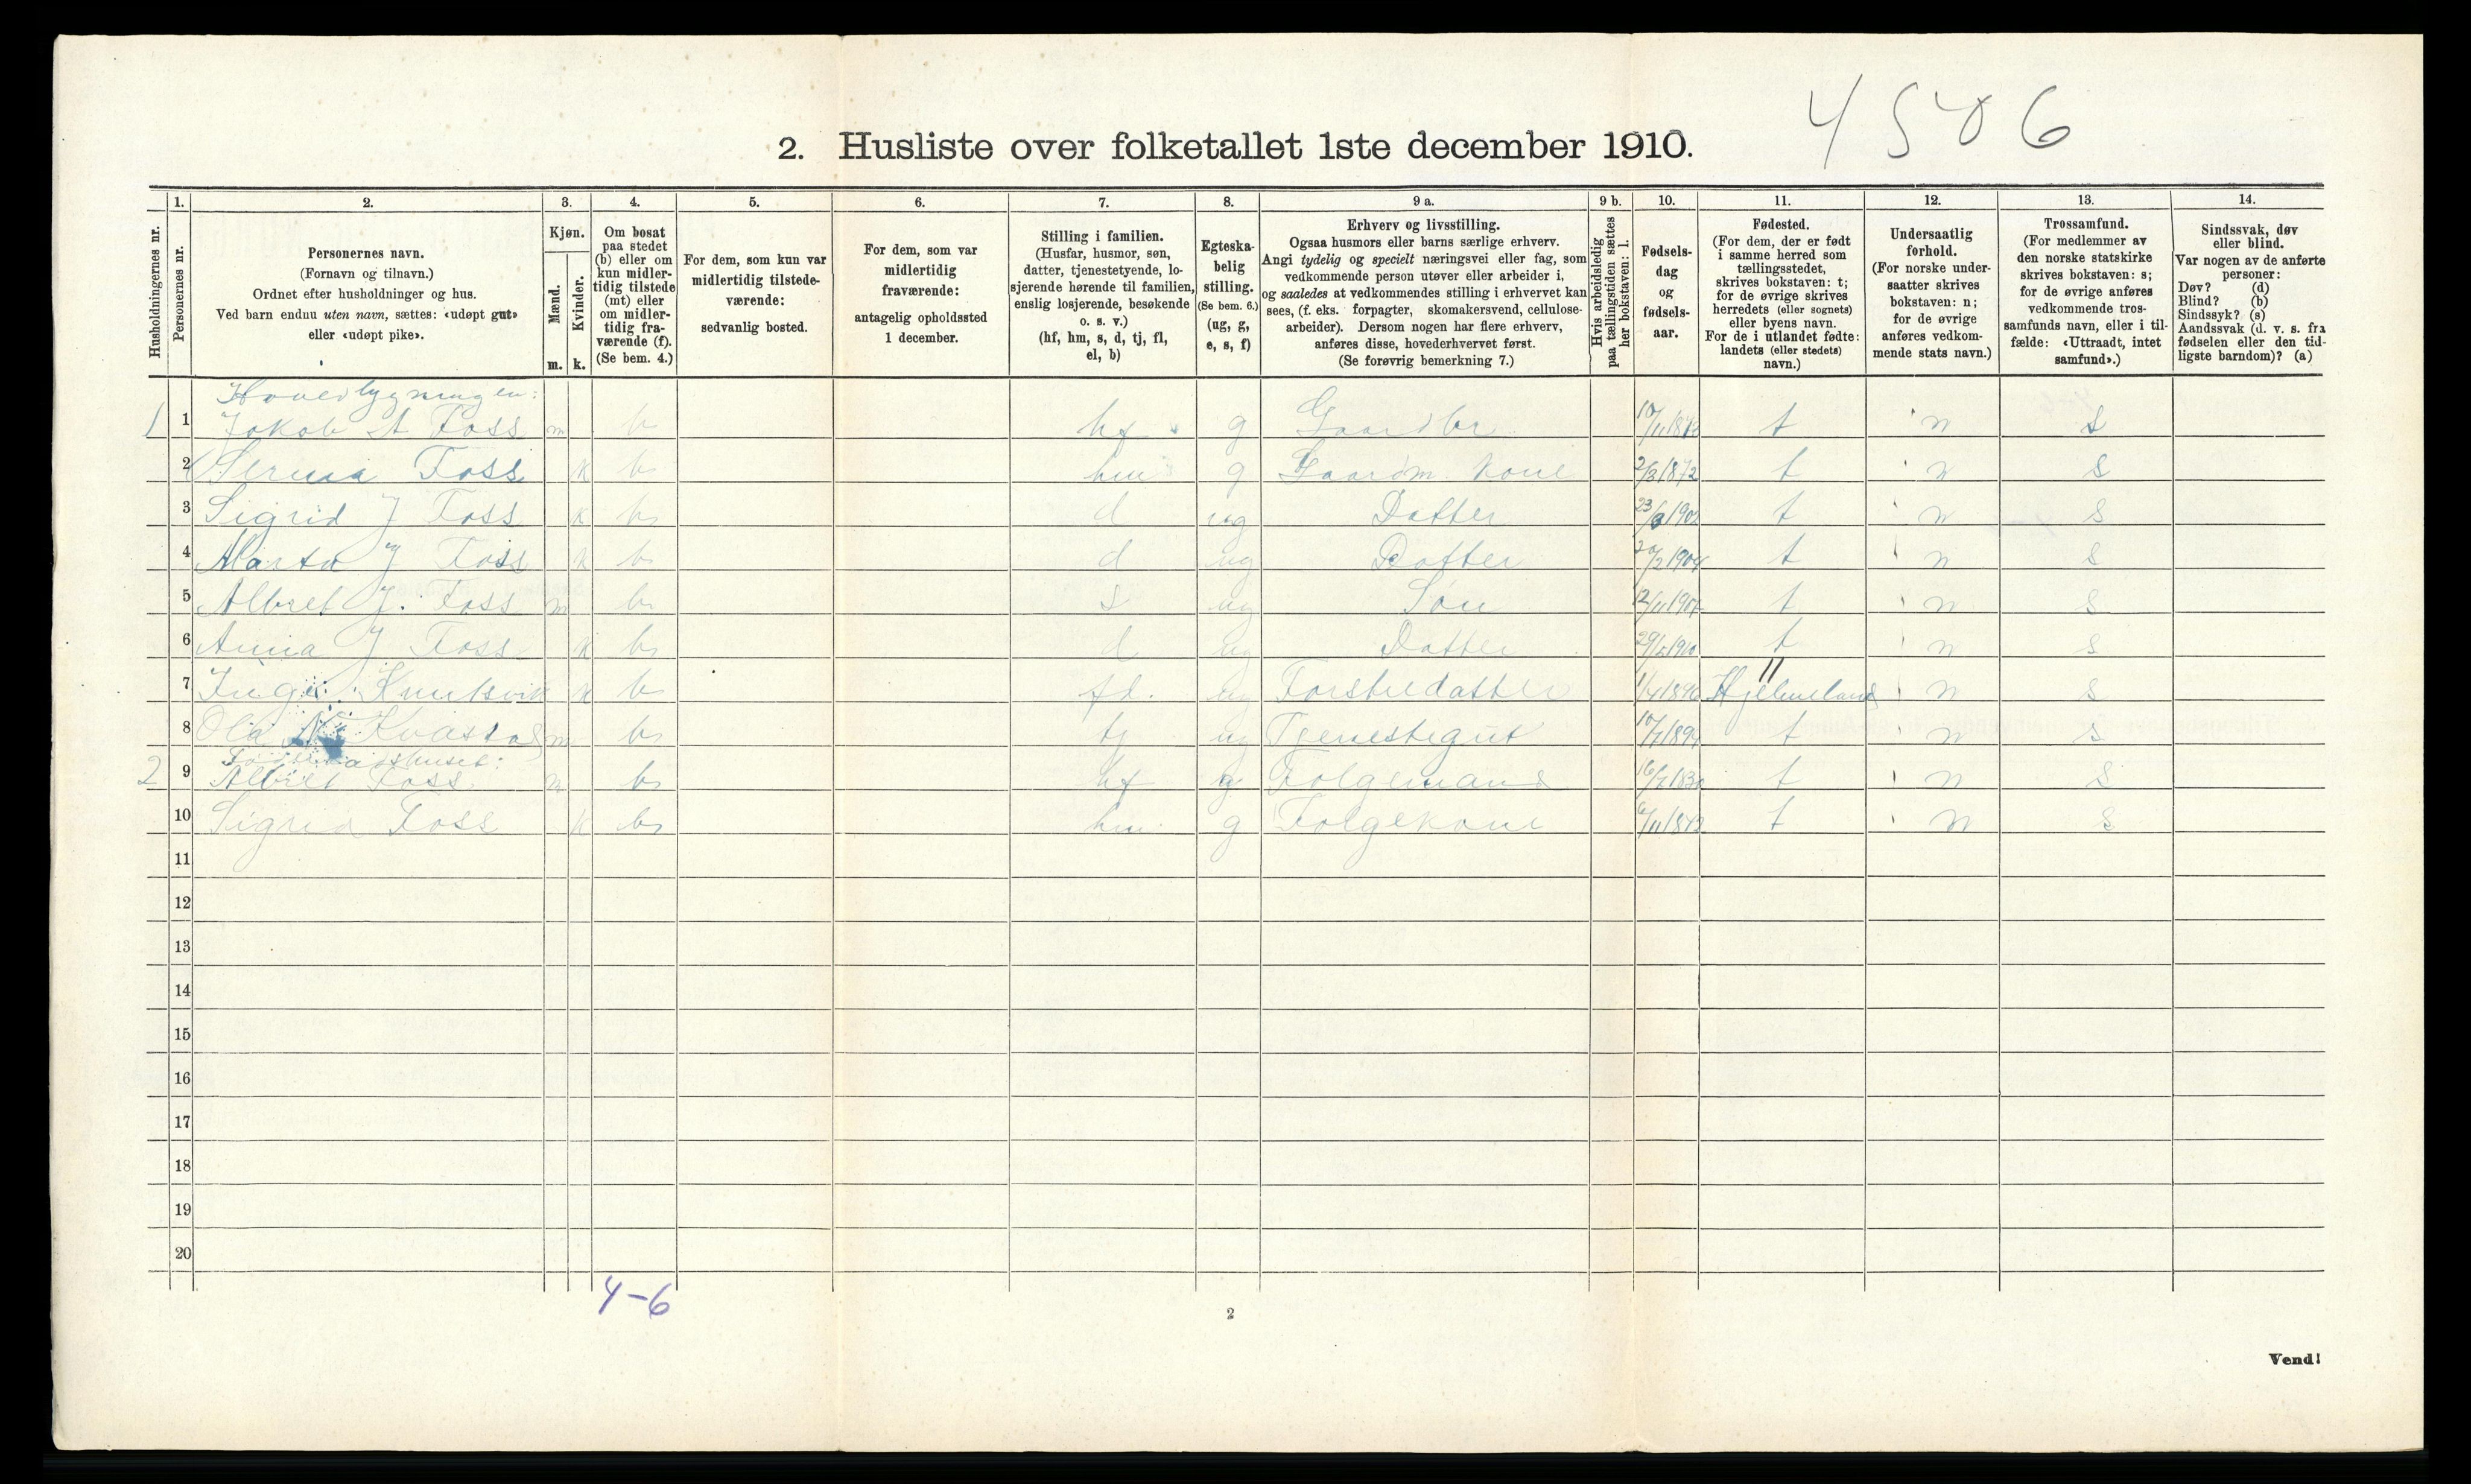 4506
2. Husliste over folketallet 1ste december 1910.
Husholdningernes nr.
1. Personernes nr.
2. Personernes navn.
(Fornavn og tilnavn.)
Ordnet efter husholdninger og hus.
Ved barn endnu uten navn, sættes: «udøpt gut»
eller «udøpt pike».
3. Kjøn.
Mænd. m.
Kvinder. k.
4. Om bosat
paa stedet
(b) eller om
kun midler-
tidig tilstede
(mt) eller
om midler-
tidig fra-
værende (f).
(Se bem. 4.)
5. For dem, som kun var
midlertidig tilstede-
værende:
sedvanlig bosted.
6. For dem, som var
midlertidig
fraværende:
antagelig opholdssted
1 december.
7. Stilling i familien.
(Husfar, husmor, søn,
datter, tjenestetyende, lo-
sjerende hørende til familien,
enslig losjerende, besøkende
o. s. v.)
(hf, hm, s, d, tj, fl,
el, b)
8. Egteska-
belig
stilling.
(Se bem. 6.)
(ug, g,
e, s, f)
9 a. Erhverv og livsstilling.
Ogsaa husmors eller barns særlige erhverv.
Angi tydelig og specielt næringsvei eller fag, som
vedkommende person utøver eller arbeider i,
og saaledes at vedkommendes stilling i erhvervet kan
sees, (f. eks. forpagter, skomakersvend, cellulose-
arbeider). Dersom nogen har flere erhverv,
anføres disse, hovederhvervet først.
(Se forøvrig bemerkning 7.)
9 b. Hvis arbeidsledig
paa tællingstiden sættes
her bokstaven: l.
10. Fødsels-
dag
og
fødsels-
aar.
11. Fødested.
(For dem, der er født
i samme herred som
tællingsstedet,
skrives bokstaven: t;
for de øvrige skrives
herredets (eller sognets)
eller byens navn.
For de i utlandet fødte:
landets (eller stedets)
navn.)
12. Undersaatlig
forhold.
(For norske under-
saatter skrives
bokstaven: n;
for de øvrige
anføres vedkom-
mende stats navn.)
13. Trossamfund.
(For medlemmer av
den norske statskirke
skrives bokstaven: s;
for de øvrige anføres
vedkommende tros-
samfunds navn, eller i til-
fælde: «Uttraadt, intet
samfund».)
14. Sindssvak, døv
eller blind.
Var nogen av de anførte
personer:
Døv? (d)
Blind? (b)
Sindssyk? (s)
Aandssvak (d. v. s. fra
fødselen eller den tid-
ligste barndom)? (a)
Hovedbygningen:
1 1 Jakob A Foss m b hf g Gaardbr t n s
2 Serina Foss k b hm g Gaardm. Kone 2/3 1872 t n s
3 Sigrid J Foss k b d ug Datter t n s
4 Marta J Foss k b d ug Datter t n s
5 Albret J. Foss m b s ug Søn t n s
6 Anna J Foss k b d ug Datter t n s
7 Inga Knutsvik k b fl. ug Forstredatter Hjelmeland n s
8 Ola m b tj ug Tjenestegut t n s
2 9 Albret Foss m b hf g Folgemand t n s
10 Sigrid Foss k b hm g Folgekone t n s
11
12
13
14
15
16
17
18
19
20
4-6
2
Vend!